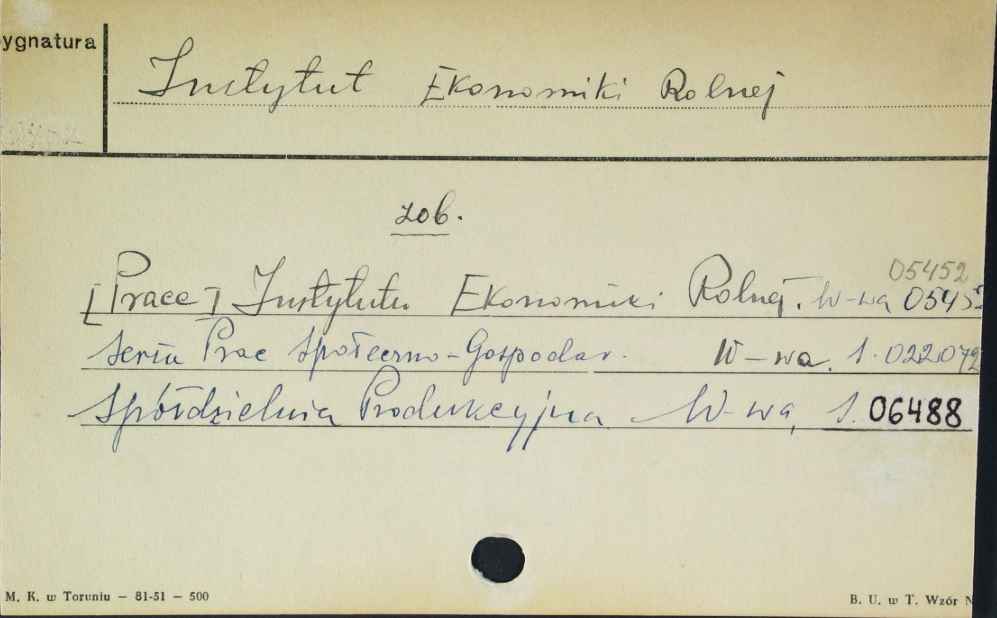 ygnatura
Instytut Ekonomiki Rolnej
zob.
05452
[Prace] Instytutu Ekonomiki Rolnej. W-wa 0545
Seria Prac Społeczno-Gospodar. W-wa. S. 022072
Spółdzielnia Produkcyjna W-wa, S. 06488
M. K. w Toruniu — 81-51 — 500
B. U. w T. Wzór N